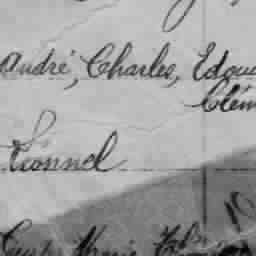 André, Charles, Edou
Clém
Lionnel
10
Marie